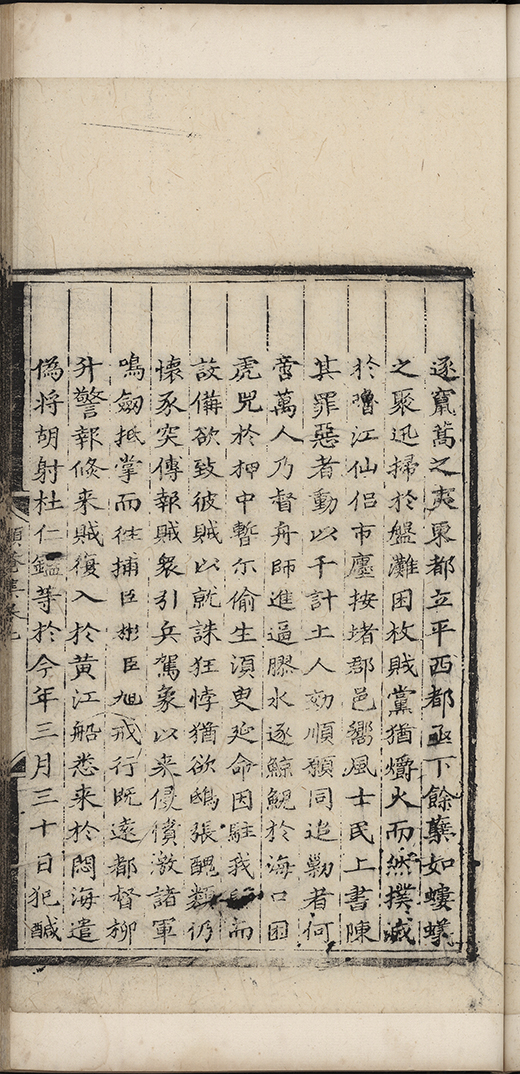 遂竄蔿之夷東都立平西都亟下餘孽如螻蟻
之聚迅掃於盤灘困枚賊黨猶爝火而然撲滅
於嚕江仙侣市廛按堵郡邑嚮風士民上書陳
其罪惡者動以千計土人効順顙同追勦者何
啻萬人乃督舟師進逼膠水逐鯨鯢於海口困
虎兕於柙中暫尓偷生湏臾延命因駐我師而
設備欲致彼賊以就誅狂悖猶欲鴟張醜類仍
懷豕突傳報賊衆引兵駕象以来侵憤激諸軍
鳴劒抵掌而往捕臣彬臣旭戒行既遠都督柳
升警報倐来賊復入於黄江船悉来於悶海遣
偽将胡射杜仁鑑等於今年三月三十日犯醎
頤菴集卷九